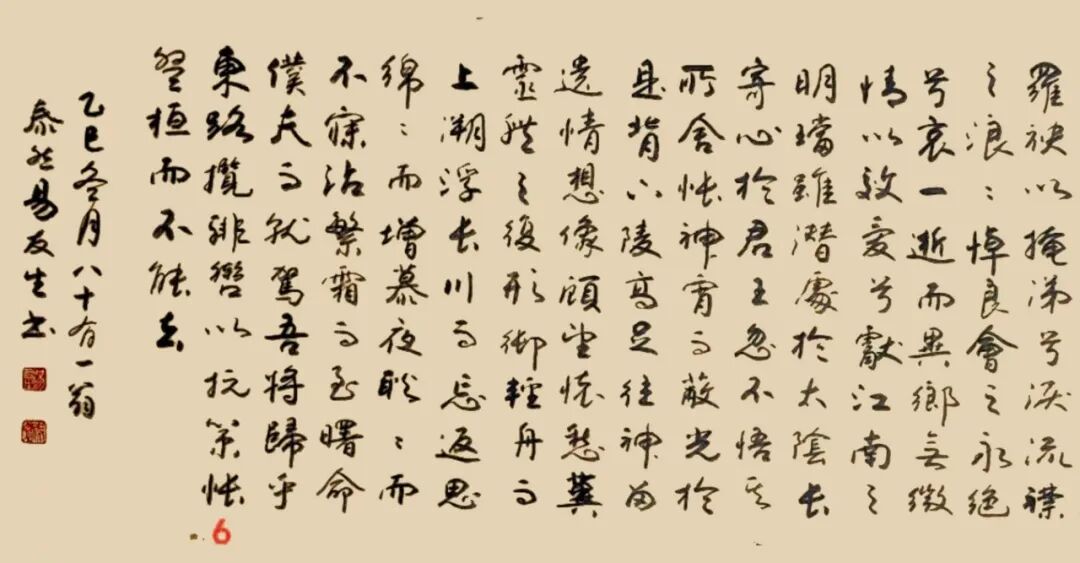 羅袂以掩涕兮淚流襟
之浪〻悼良會之永絕
兮哀一逝而異鄉無微
情以效愛兮獻江南之
明璫雖潛處於太陰長
寄心於君王忽不悟其
所舍悵神宵而蔽光於
是背下陵高足往神留
遺情想像顧望懷愁冀
靈體之復形御輕舟而
上溯浮長川而忘返思
綿〻而增慕夜耿〻而
不寐沾繁霜而至曙命
僕夫而就駕吾將歸乎
東路攬騑轡以抗策悵
盤桓而不能去
乙巳冬月八十有一翁
泰然易友生書
6